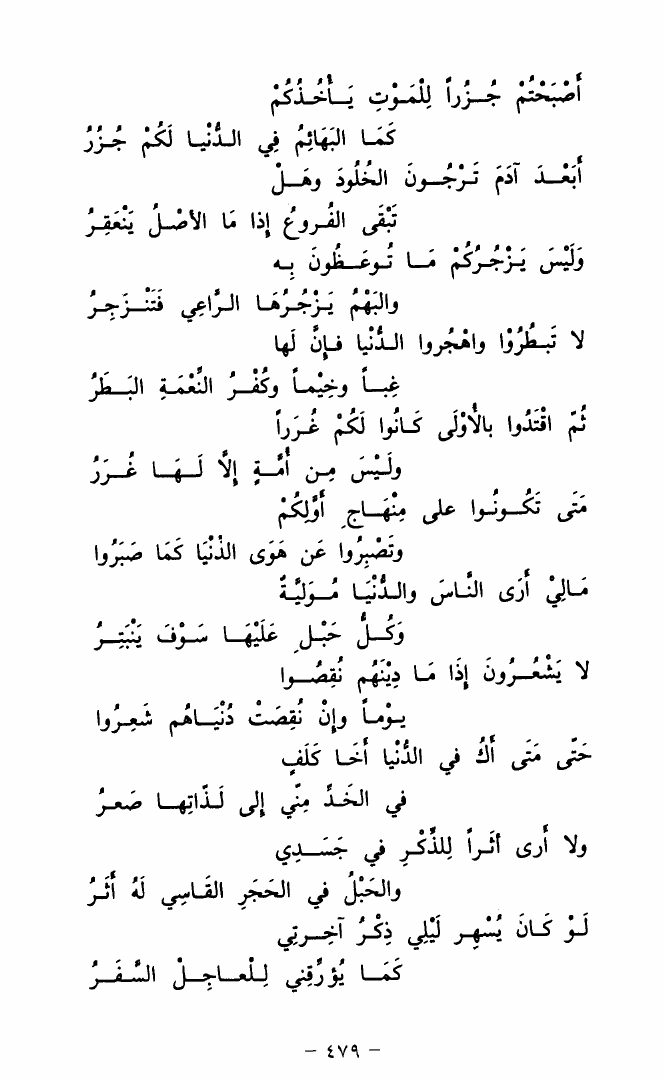 أَصْبَحْتُمْ جُـزُراً لِلْمَـوْتِ يَـأْخُـذُكُمْ
كَمَـا البَهَائِمُ فِي الـدُّنْيـا لَكُمْ جُـزُرُ
أَبَعْـدَ آدَمَ تَـرْجُـونَ الخُلُودَ وهَـلْ
تَبْقَى الفُـروعُ إِذا مَا الأصْـلُ يَنْعَقِـرُ
وَلَيْسَ يَـزْجُـرُكُمْ مَـا تُـوعَـظُونَ بِـه
والبَهْمُ يَـزْجُـرُهَـا الـرَّاعِي فَتَنْـزَجِـرُ
لا تَبـطُرُوْا واهْجُروا الـدُّنْيا فـإِنَّ لَها
غِبـاً وخِيْمـاً وكُفْـرُ النِّعْمَـةِ البَـطَرُ
ثُمّ اقْتَدُوا بالْأُوْلَى كَـانُوا لَكُمْ غُـرَراً
ولَـيْسَ مِـن أُمَّـةٍ إلَّا لَـهَـا غُـرَرُ
مَتَى تَكُـونُـوا على مِنْهَـاجِ أَوَّلِكُمْ
وتَصْبِرُوا عَن هَوَى الدُنْيَا كَمَا صَبَرُوا
مَـالِيْ أَرَى النَّـاسَ والـدُّنْيَـا مُـوَلِّيَـةٌ
وَكُـلُّ حَبْـلٍ عَلَيْهَـا سَـوْفَ يَنْبَتِـرُ
لا يَشْعُـرُونَ إِذَا مَـا دِيْنَهُم نُقِصُـوا
يـوْمـاً وإِنْ نُقِصَتْ دُنْيَـاهُم شَعِـرُوا
حَتّى مَتَى أَكُ في الدُّنْيا أَخَـا كَلَفٍ
في الخَـدِّ مِنّي إلى لَـذّاتِهـا صَعـرُ
ولا أَرى أثَـراً لِلذِّكْـرِ في جَسَـدِي
والحَبْلُ في الحَجَرِ القَـاسِي لَهُ أَثَـرُ
لَـوْ كَـانَ يُسْهِـر لَيْلِي ذِكْـرُ آخِـرتِي
كَمَـا يُؤرِّقِني لِلْعـاجِـلْ السَّـفَـرُ
- ٤٧٩ -